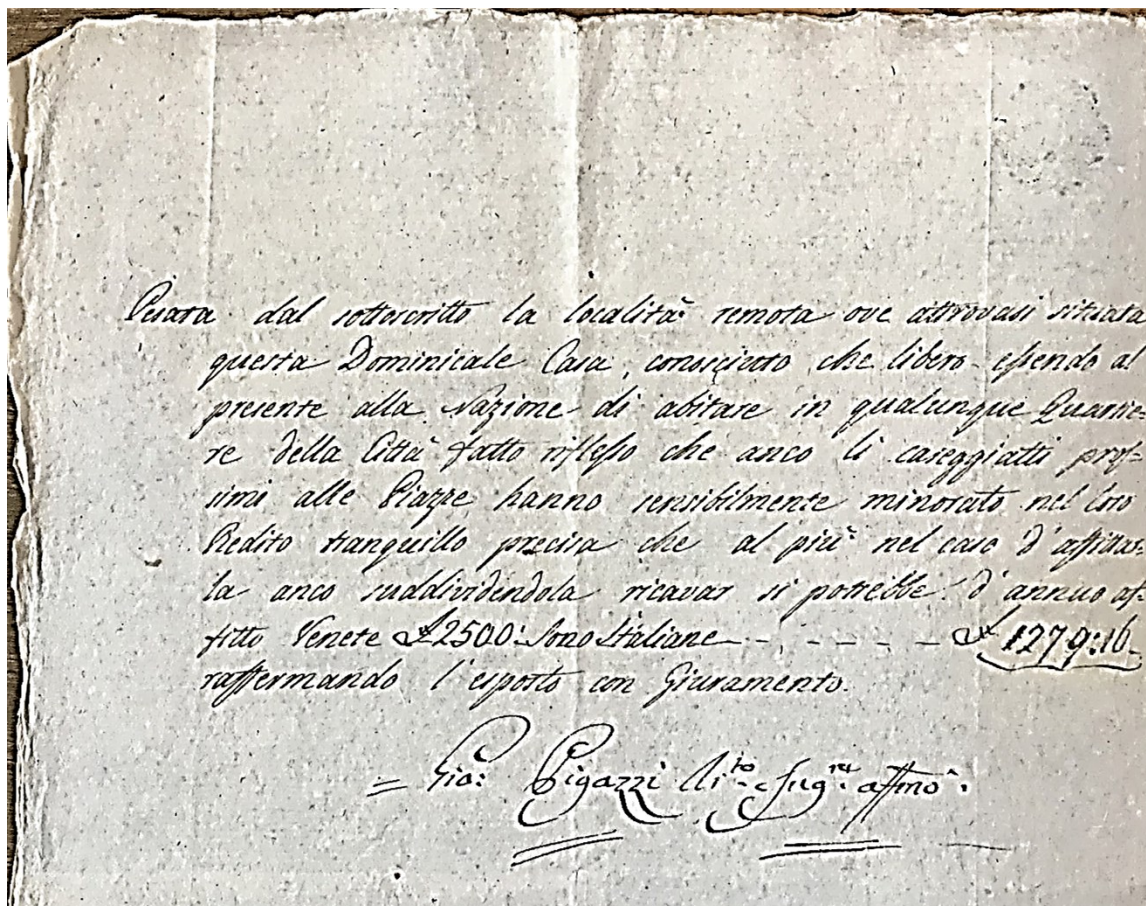 Pesata dal sottoscritto la località remota ove attrovasi situata
questa Dominicale Casa, conosciuto, che libero essendo al
presente alla Nazione di abitare in qualunque Quartie-
re della Città fatto riflesso che anco li caseggiatti pros-
simi alle Piazze hanno sensibilmente minorato nel loro
Redito tranquillo precisa che al più nel caso d'affittar-
la anco suddividendola ricavar si potrebbe d'annuo af-
fitto Venete £ 2500: Sono Italiane - - - - - £ 1279:16
raffermando l'esposto con Giuramento.
= Gio: Pigazzi